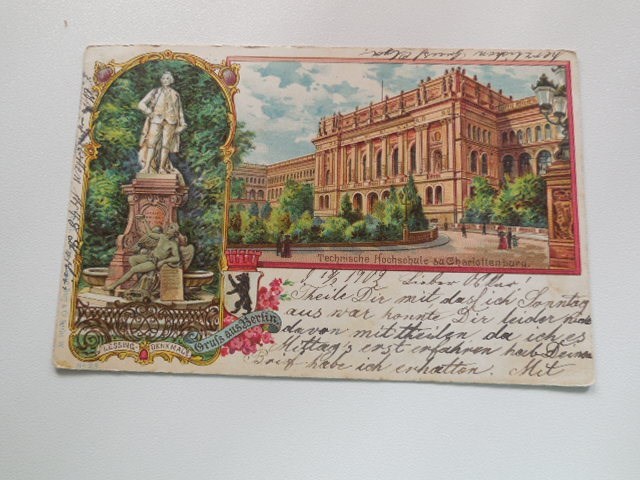 Technische Hochschule zu Charlottenburg.
1902 Lieber
Theile Dir mit das ich Sonntag
aus war konnte Dir leider nicht
davon mittheilen da ich es
Mittag's erst erfahren hab Deinen
Brief habe ich erhalten. Mit
Gruss aus Berlin
LESSING-DENKMAL